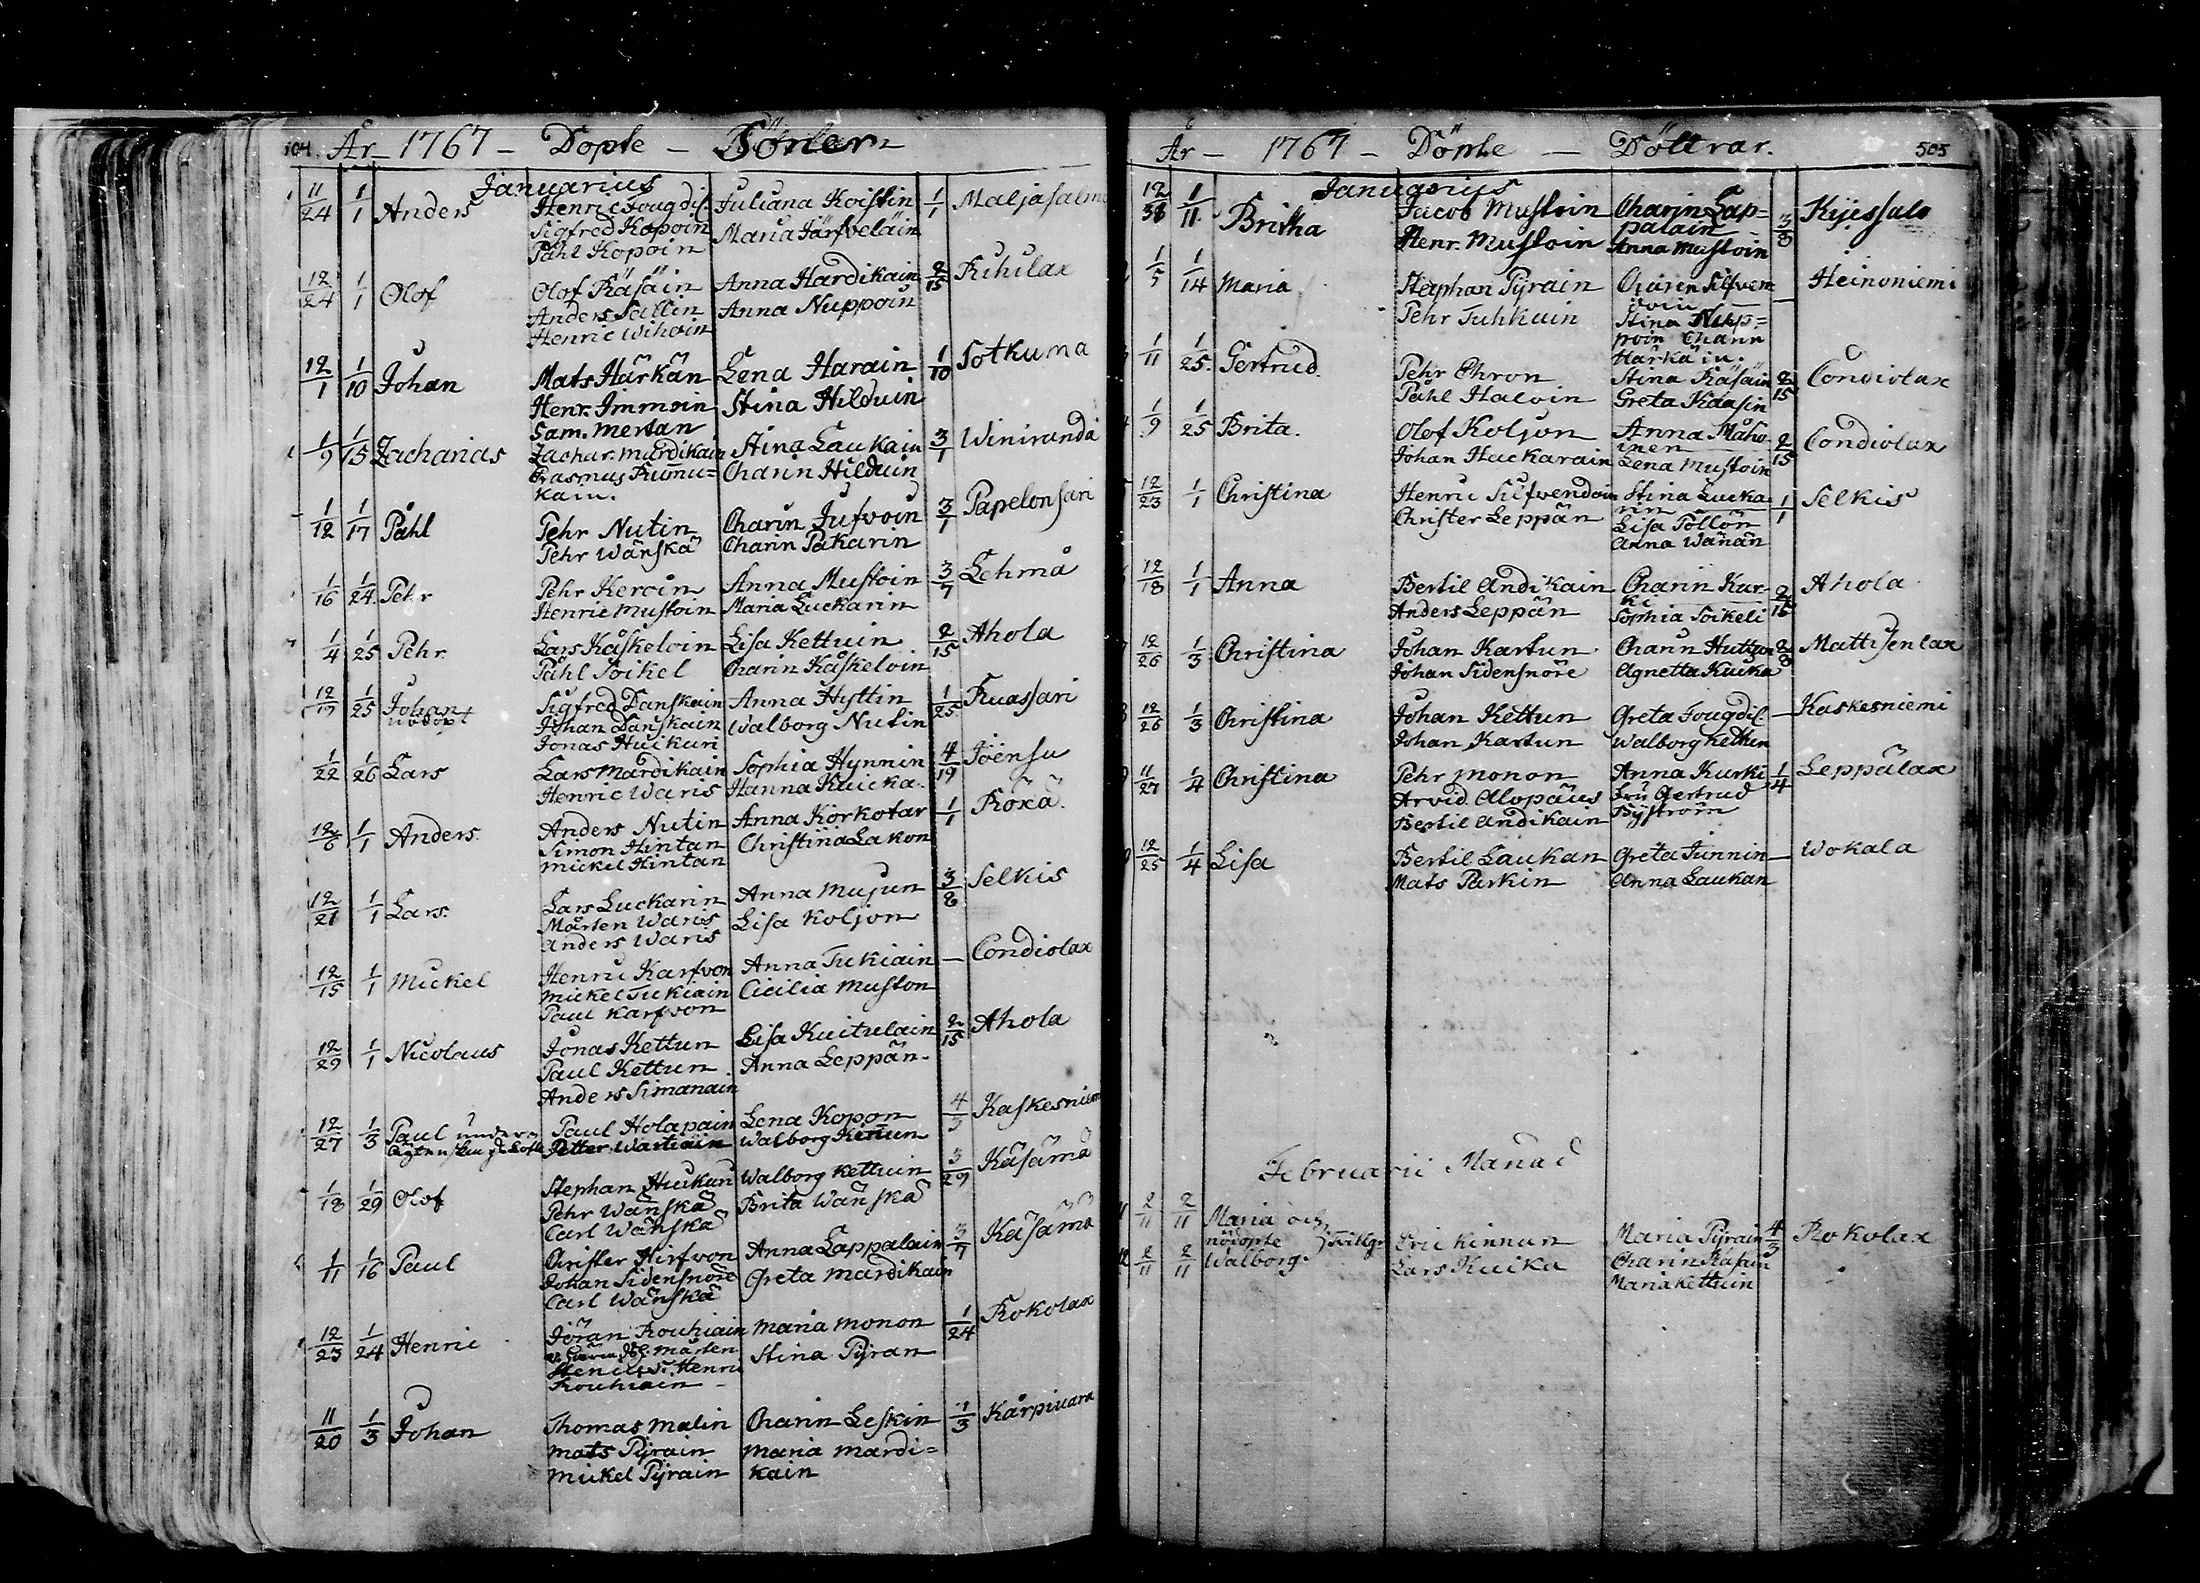 År 1767 - Döpte - Söner
Januarius
11/24 1/1 Anders Henric Fougdt. Juliana Koistin 1/1 Maljasalmi
Sigfred Kopoin Maria Järfveläin
Påhl Kopoin
12/24 1/1 Olof Olof Räsäin Anna Hardikain 2/15
Anders Sallin Anna Nuppoin
Henric Wihoin
12/1 1/10 Johan Mats Härkän Lena Harain 1/10 Sotkuma
Henr. Immoin Stina Hilduin
Sam. Mertan
1/9 1/15 Zacharias Zachar. Mardikain Stina Laukain 3/1 Winiranda
Erasmus Rumu= Charin Hilduin
kain.
1/12 1/17 Påhl Pehr Nutin Charin Jufvoin 3/1 Papelonsari
Pehr Wänskä Charin Pakarin
1/16 1/24 Pehr Pehr Keroin Anna Mustoin 3/7 Lehmå
Henric Mustoin Maria Luckarin
1/4 1/25 Pehr Lars Kåskeloin Lisa Kettuin 2/15 Ahola
Påhl Soikel Charin Kåskeloin
12/17 1/25 Johan Sigfred Danskain Anna Hyttin 1/25 Ruassari
nödöpt Johan Danskain Walborg Nutin
Jonas Huikuri
1/22 1/26 Lars Lars Mardikain Sophia Hynnin 4/19 Joensu
Henric Waris Hanna Kuicka
12/6 1/1 Anders Anders Nutin Anna Korkotar 1/1 Röxä
Simon Hintan Christina Lakon
Mickel Hintan
12/21 1/1 Lars Lars Luckarin Anna Mujun 3/8 Selkis
Mårten Waris Lisa Koljon
Anders Waris
12/15 1/1 Mickel Henric Karfvon Anna Tukiain — Condiolax
Mickel Tukiain Cicilia Muston
Paul Karfvon
12/29 1/1 Nicolaus Jonas Kettun Lisa Kuitulain 2/15 Ahola
Paul Kettun Anna Leppän
Anders Simanain
12/27 1/3 Paul Paul Holapain Lena Kopon 4/5 Kaskesniemi
Petter Wartiain Walborg Kinnun
1/18 1/29 Olof Stephan Huikuri Walborg Kettuin 3/29 Käsämä
Pehr Wänskä Brita Wänskä
Carl Wänskä
1/11 1/16 Paul Christer Hirfvon Anna Lappalain 3/7 Käsämä
Johan Sidensnöre Greta Mardikain
Carl Wänskä
12/23 1/24 Henric Jöran Rouhiain Maria Monon 1/24 Rokolax
Mårten Stina Pyran
Stenius. Henric
Rouhiain
11/20 1/3 Johan Thomas Malin Charin Leskin 1/3 Kårpivara
Mats Pyrain Maria Mardi=
Mickel Pyrain kain
År - 1767 - Döpte - Döttrar. 505
Januarius
12/38 1/11 Britha Jacob Mustoin Charin Lap= 3/8 Kijessalo
palain
Henr. Mustoin Anna Mustoin
1/5 1/14 Maria Staphan Pyrain Charin Silfven Heinoniemi
doin
Pehr Tuhkuin Stina Nup=
poin Charin
Härkäin.
1/11 1/25. Gertrud. Pehr Ehron Stina Räsäin 2/15 Condiolax
Påhl Haloin Greta Kaasin
1/9 1/25 Brita. Olof Koljon Anna Måho 2/15 Condiolax
inen
Johan Hackarain Lena Mustoin
12/23 1/1 Christina Henric Silfvendoin Stina Lucka 1/1 Selkis
rin
Christer Leppän Lisa Töllön
Anna Wänän
12/18 1/1 Anna Bertil Andikain Charin Kur- 2/15 Ahola
ki
Anders Leppän Sophia Soikeli
12/26 1/3 Christina Johan Kartun Charin Huttun 2/8 Mattisenlax
Johan Sidensnöre Agnetta Kuika
12/26 1/3 Christina Johan Kettun Greta Fougdt. — Kaskesniemi
Johan Kartun Walborg Kettun
11/27 1/4 Christina Pehr Monon Anna Kurki 1/4 Leppälax
Arvid Alopäus Fru Gertrud
Bertil Andikain Byström
12/25 1/4 Lisa Bertil Laukan Greta Tunnin — Wokala
Mats Parkin Anna Laukan
Februarii Månad
11 2/11 2/11 Maria och
nödöpte Tvillgr Eric Kinnun Maria Pyrain 4/3 Rokolax
12 2/11 2/11 Walborg. Lars Kuika Charin Räsäin
Maria Kettuin